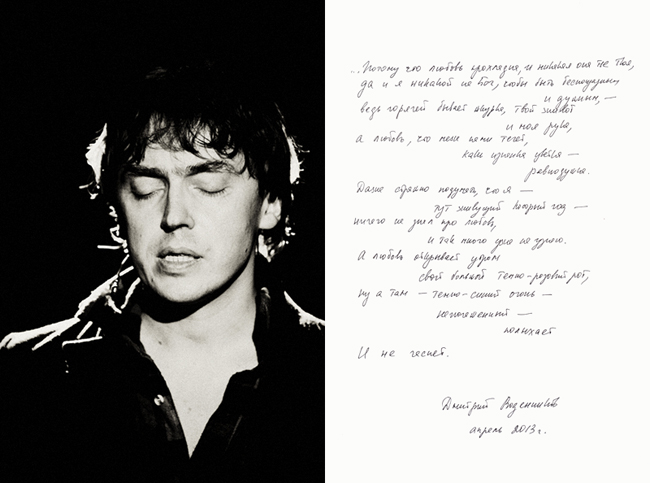 ...Потому что любовь кроплядия, и никакая она не твоя,
да и я никакой не Бог, чтобы быть беспощадным
и душным, —
ведь горячей бывает шкурка, твой живот
и моя рука,
а любовь, что меж нами течёт,
как изнанка увечья —
равнодушна.
Даже странно подумать, что я —
тут живущий который год —
ничего не знал про любовь,
и так много уже не узнаю.
А любовь открывает удом
свой большой тёмно-розовый рот,
ну а там — темно-синий огонь —
непогашенный —
полыхает
И не гаснет.
Дмитрий Воденников
апрель 2013г.